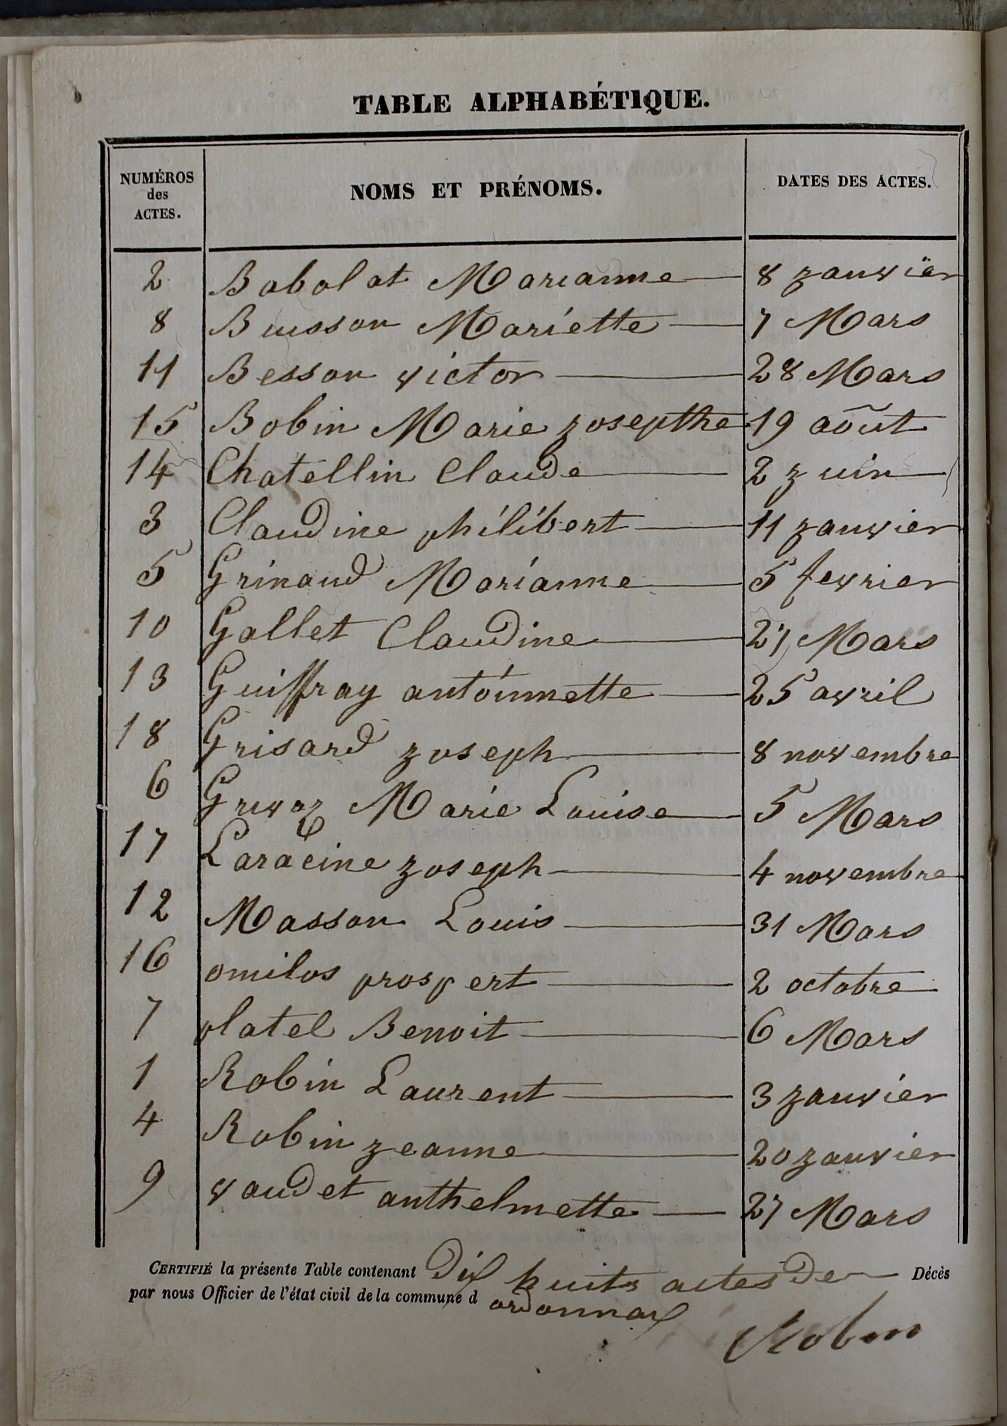 TABLE ALPHABÉTIQUE.
NUMÉROS des ACTES. NOMS ET PRÉNOMS. DATES DES ACTES.
2 Babolat Marianne 8 zanvier
8 Buisson Mariette 7 Mars
11 Besson victor 28 Mars
15 Bobin Marie zosepthe 19 août
14 Chatellin Claude 2 zuin
3 Claudine philibert 11 zanvier
5 Grinaud Marianne 5 fevrier
10 Gallet Claudine 27 Mars
13 Guiffray antoinnette 25 avril
18 Grisard zoseph 8 novembre
6 Grivaz Marie Louise 5 Mars
17 Laracine zoseph 4 novembre
12 Masson Louis 31 Mars
16 omilos prospert 2 octobre
7 platel Benoit 6 Mars
1 Robin Laurent 3 zanvier
4 Robin zeanne 20 zanvier
9 vaudet anthelmette 27 Mars
CERTIFIÉ la présente Table contenant Dix huits actes De Décès
par nous Officier de l'état civil de la commune d ordonnax
Robin